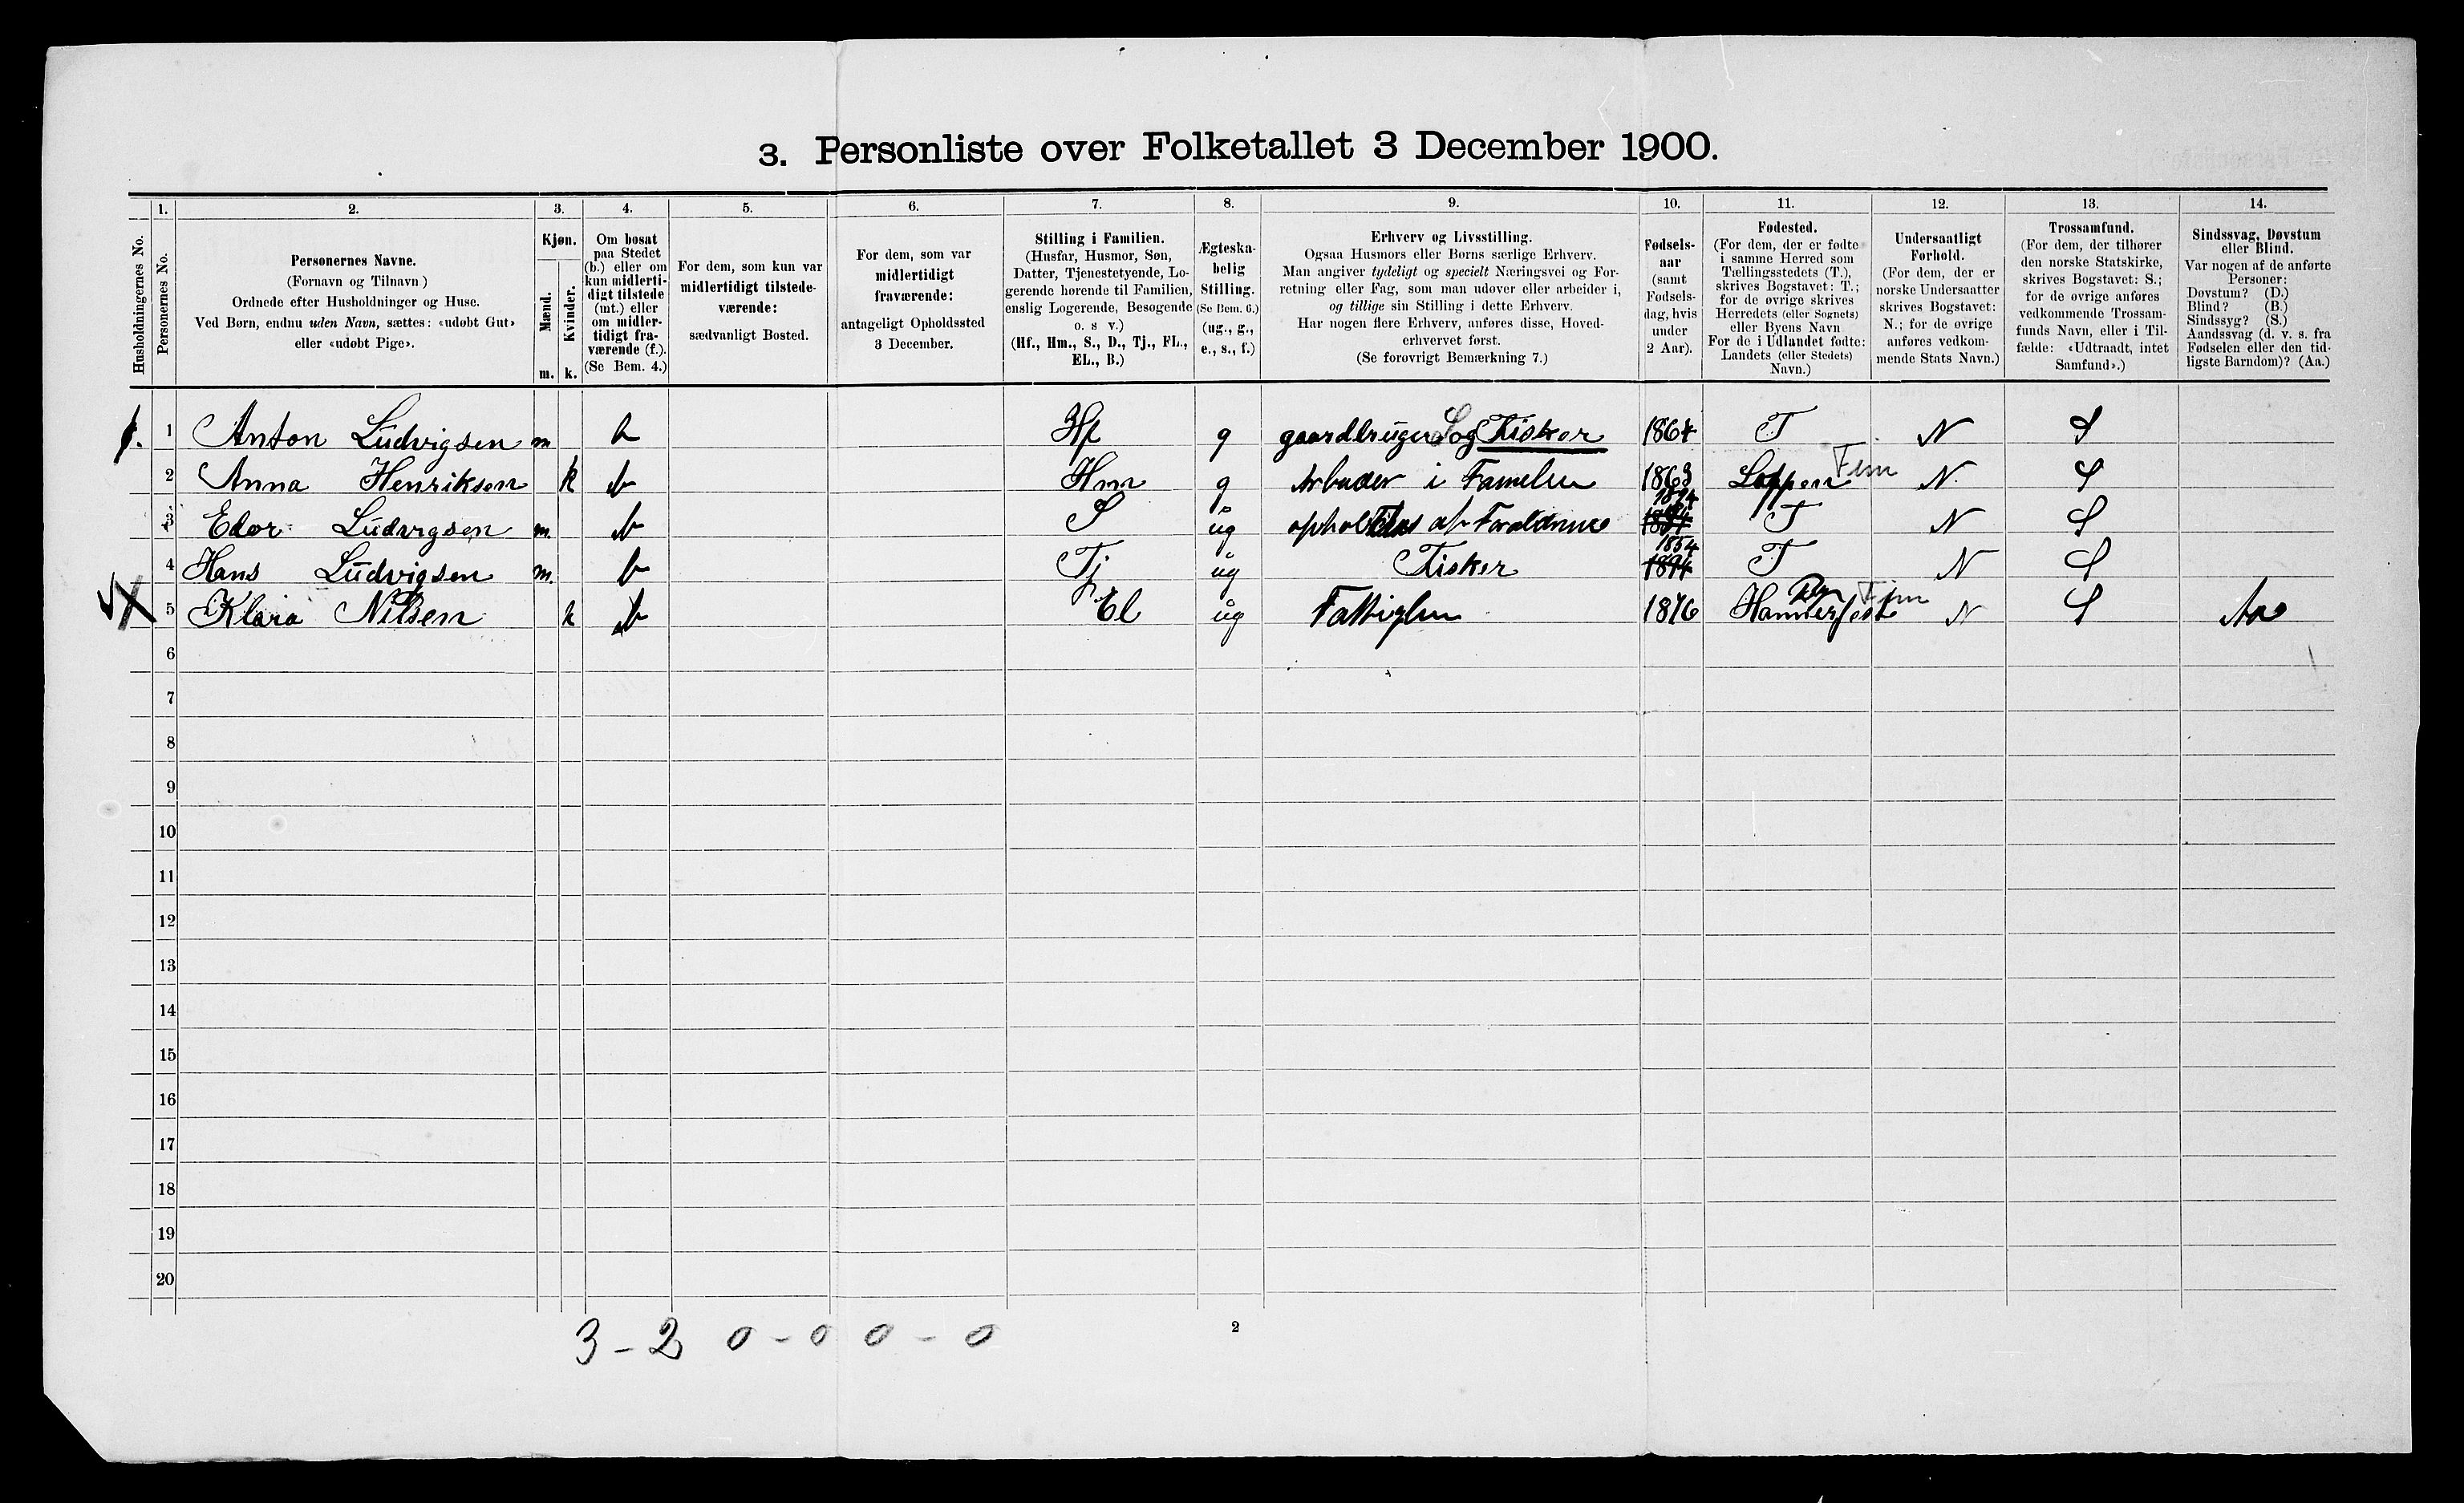 3. Personliste over Folketallet 3 December 1900.
1. 2. 3. 4. 5. 6. 7. 8. 9. 10. 11. 12. 13. 14.
Husholdningernes No.
Personernes No.
Personernes Navne.
(Fornavn og Tilnavn)
Ordnede efter Husholdninger og Huse.
Ved Børn, endnu uden Navn, sættes: «udøbt Gut»
eller «udøbt Pige».
Kjøn.
Mænd.
Kvinder.
m. k.
Om bosat
paa Stedet
(b.) eller om
kun midlerti-
digt tilstede
(mt.) eller
om midler-
tidigt fra-
værende (f.).
(Se Bem. 4.)
For dem, som kun var
midlertidigt tilstede-
værende:
sædvanligt Bosted.
For dem, som var
midlertidigt
fraværende:
antageligt Opholdssted
3 December.
Stilling i Familien.
(Husfar, Husmor, Søn,
Datter, Tjenestetyende, Lo-
gerende hørende til Familien,
enslig Logerende, Besøgende
o. s v.)
(Hf., Hm., S., D., Tj., FL.,
EL., B.)
Ægteska-
belig
Stilling.
(Se Bem. 6.)
(ug., g.,
e., s., f.)
Erhverv og Livsstilling.
Ogsaa Husmors eller Børns særlige Erhverv.
Man angiver tydeligt og specielt Næringsvei og For-
retning eller Fag, som man udøver eller arbeider i,
og tillige sin Stilling i dette Erhverv.
Har nogen flere Erhverv, anføres disse, Hoved-
erhvervet først.
(Se forøvrigt Bemærkning 7.)
Fødsels-
aar
(samt
Fødsels-
dag, hvis
under
2 Aar).
Fødested.
(For dem, der er fødte
i samme Herred som
Tællingsstedets (T.),
skrives Bogstavet: T.;
for de øvrige skrives
Herredets (eller Sognets)
eller Byens Navn
For de i Udlandet fødte:
Landets (eller Stedets)
Navn.)
Undersaatligt
Forhold.
(For dem, der er
norske Undersaatter
skrives Bogstavet:
N.; for de øvrige
anføres vedkom-
mende Stats Navn.)
Trossamfund.
(For dem, der tilhører
den norske Statskirke,
skrives Bogstavet: S.;
for de øvrige anføres
vedkommende Trossam-
funds Navn, eller i Til-
fælde: «Udtraadt, intet
Samfund».)
Sindssvag, Døvstum
eller Blind.
Var nogen af de anførte
Personer:
Døvstum? (D.)
Blind? (B.)
Sindssyg? (S.)
Aandssvag (d. v. s. fra
Fødselen eller den tid-
ligste Barndom)? (Aa.)
1. 1 Anton Ludvigsen m b Hf g gaardbruger S og Fisker 1864 T N S
2 Anna Henriksen k b Hm g Arbeider i Familien 1863 Loppen Finm N. S
3 Edor Ludvigsen m. b S ug af Forældrene 1894 T N S
4 Hans Ludvigsen m. b Tj ug Fisker 1854 1894 T N S
5 Klara Nilsen k b El ug Fattiglem 1876 Hammerfest Finm N S Aa
6
7
8
9
10
11
12
13
14
15
16
17
18
19
20
3 - 2 0 - 0 0 - 0
2